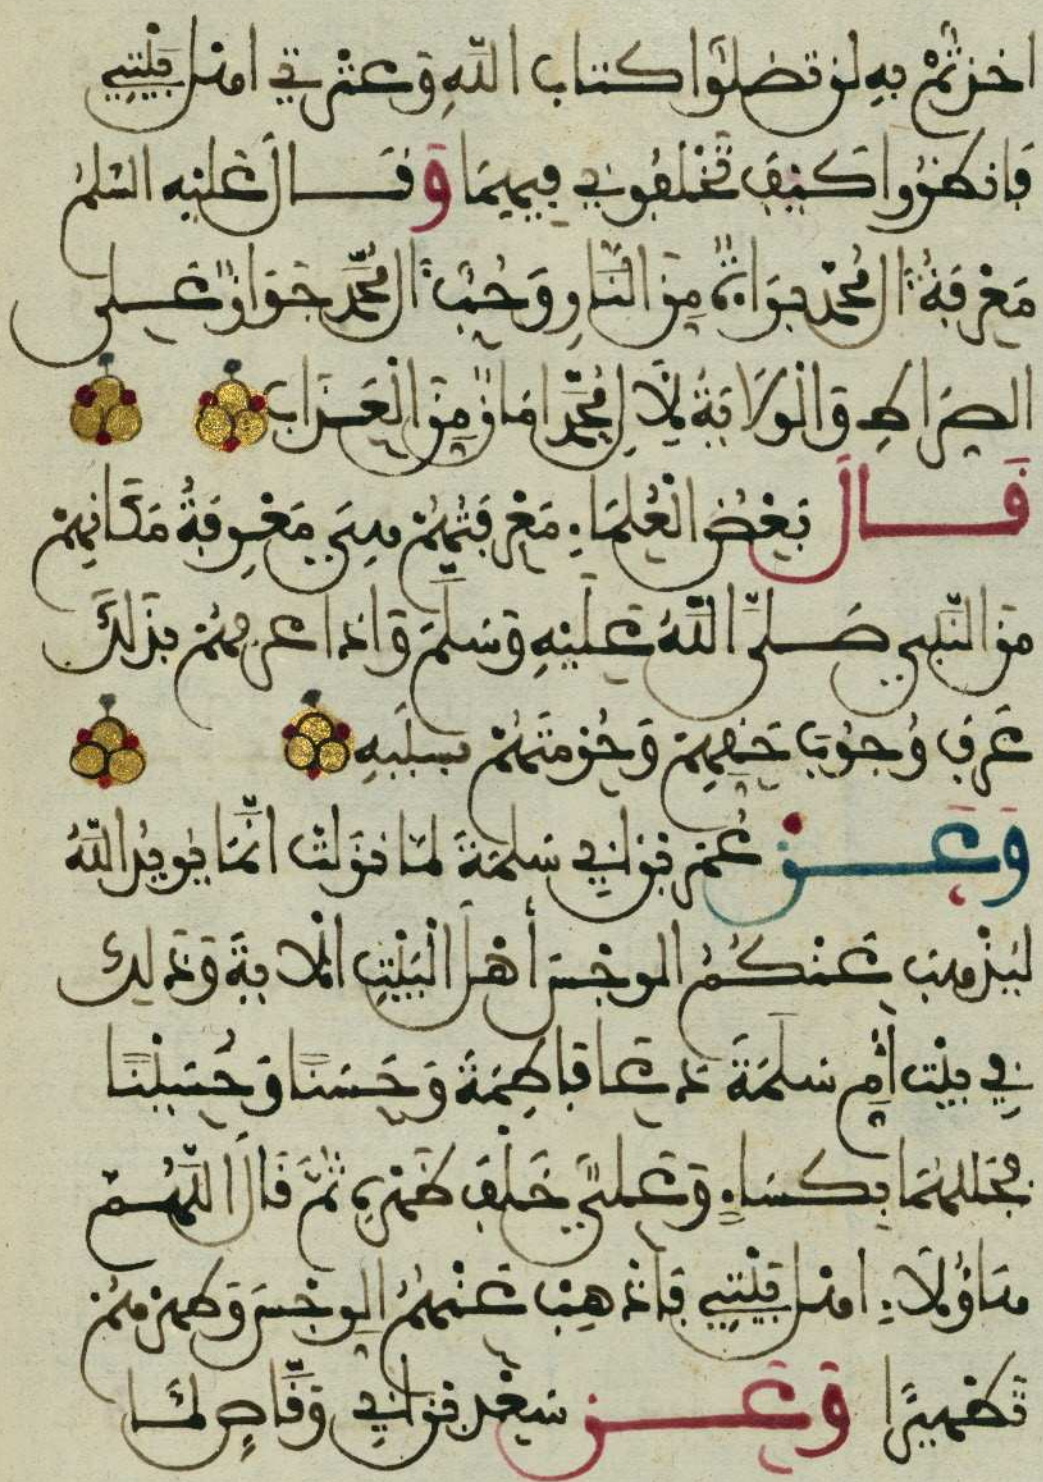 اخذتم به لن تضلوا كتاب الله وعترتي اهل بيتي
فانظروا كيف تخلفوني فيهما وقال عليه السلم
معرفة ءال محمد براءة من النار وحب ءال محمد جواز على
الصراط والولاية لال محمد امان من العذاب
قال بعض العلماء معرفتهم هي معرفة مكانهم
من النبي صلى الله عليه وسلم واذا عرفهم بذلك
عرف وجوب حقهم وحرمتهم بسببه
وعن عمر بن ابي سلمة لما نزلت انما يريد الله
ليذهب عنكم الرجس أهل البيت الاية وذلك
في بيت أم سلمة دعا فاطمة وحسنا وحسينا
فجللهما بكساء وعلي خلف ظهره ثم قال اللهم
هاؤلاء اهل بيتي فاذهب عنهم الرجس وطهرهم
تطهيرا وعن سعد بن ابي وقاص لما